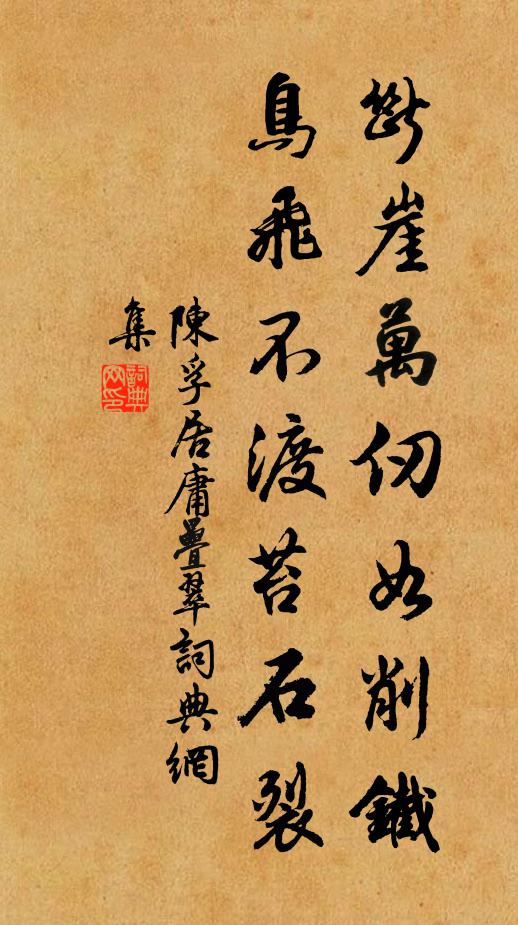 斷崖萬仞如削鐵
鳥飛不渡苔石裂
陳孚居庸疊翠詞典網
集
詞典
网印